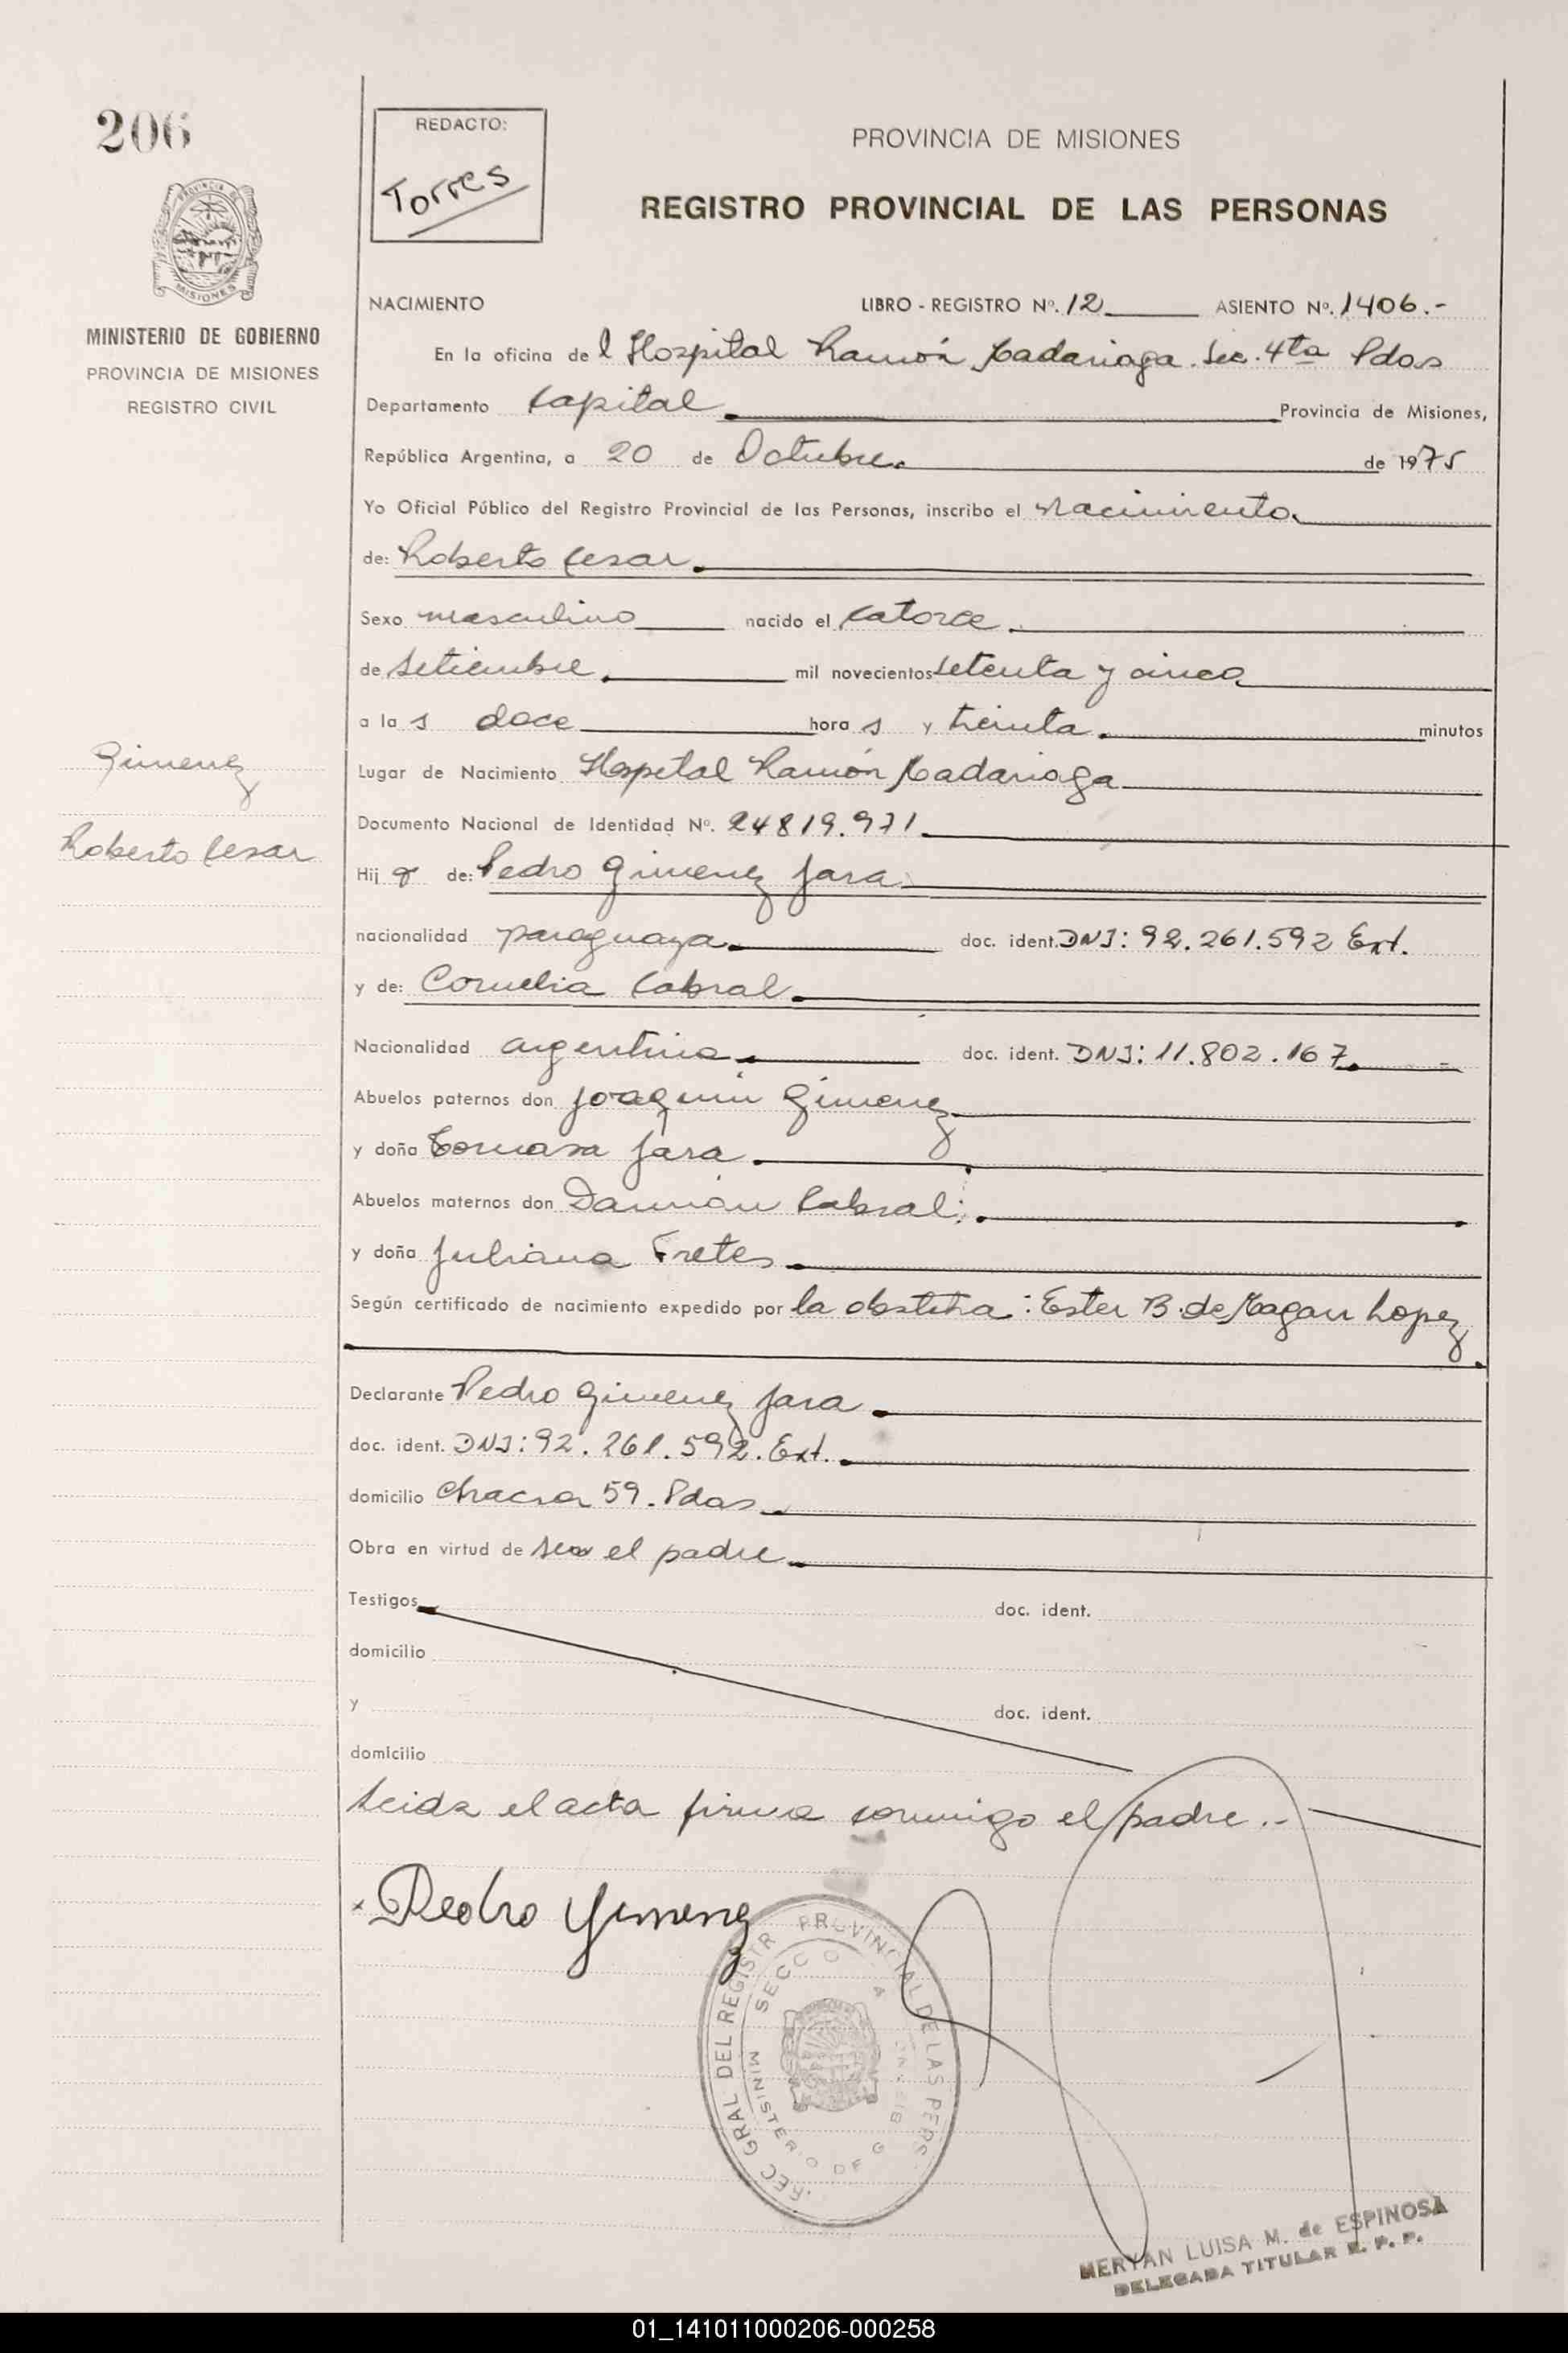 206
REDACTO:
Torres
PROVINCIA DE MISIONES
REGISTRO PROVINCIAL DE LAS PERSONAS
MINISTERIO DE GOBIERNO
PROVINCIA DE MISIONES
REGISTRO CIVIL
NACIMIENTO LIBRO - REGISTRO Nº. 12 ASIENTO Nº. 1406.-
En la oficina de l Hospital Ramón Madariaga. Sec. 4ta Pdas
Departamento Capital Provincia de Misiones,
República Argentina, a 20 de Octubre de 1975
Yo Oficial Público del Registro Provincial de las Personas, inscribo el nacimiento
de: Roberto Cesar
Sexo masculino nacido el catorce
de setiembre mil novecientos setenta y cinco
a la s doce hora s y treinta minutos
Gimenez
Roberto Cesar
Lugar de Nacimiento Hospital Ramón Madariaga
Documento Nacional de Identidad Nº. 24819.971
Hij o de: Pedro Gimenez Jara
nacionalidad paraguaya doc. ident. DNI: 92.261.592 Ext.
y de: Cornelia Cabral
Nacionalidad argentina doc. ident. DNI: 11.802.167
Abuelos paternos don Joaquin Gimenez
y doña Tomasa Jara
Abuelos maternos don Damian Cabral
y doña Juliana Fretes
Según certificado de nacimiento expedido por la obstetra: Ester B. de Magan Lopez
Declarante Pedro Gimenez Jara
doc. ident. DNI: 92.261.592. Ext.
domicilio Chacra 59. Pdas
Obra en virtud de ser el padre
Testigos doc. ident.
domicilio
y doc. ident.
domicilio
Leida el acta firma conmigo el padre.-
Pedro Gimenez
REC GRAL DEL REGISTR PROVINCIAL DE LAS PERS.
MINISTERIO DE G
MERYAN LUISA M. de ESPINOSA
DELEGADA TITULAR R. P. P.
01_141011000206-000258